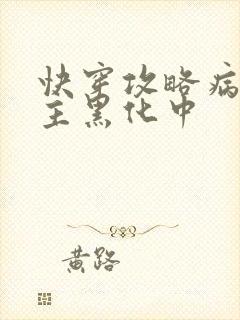 快穿攻略病
主黑化中
黄路